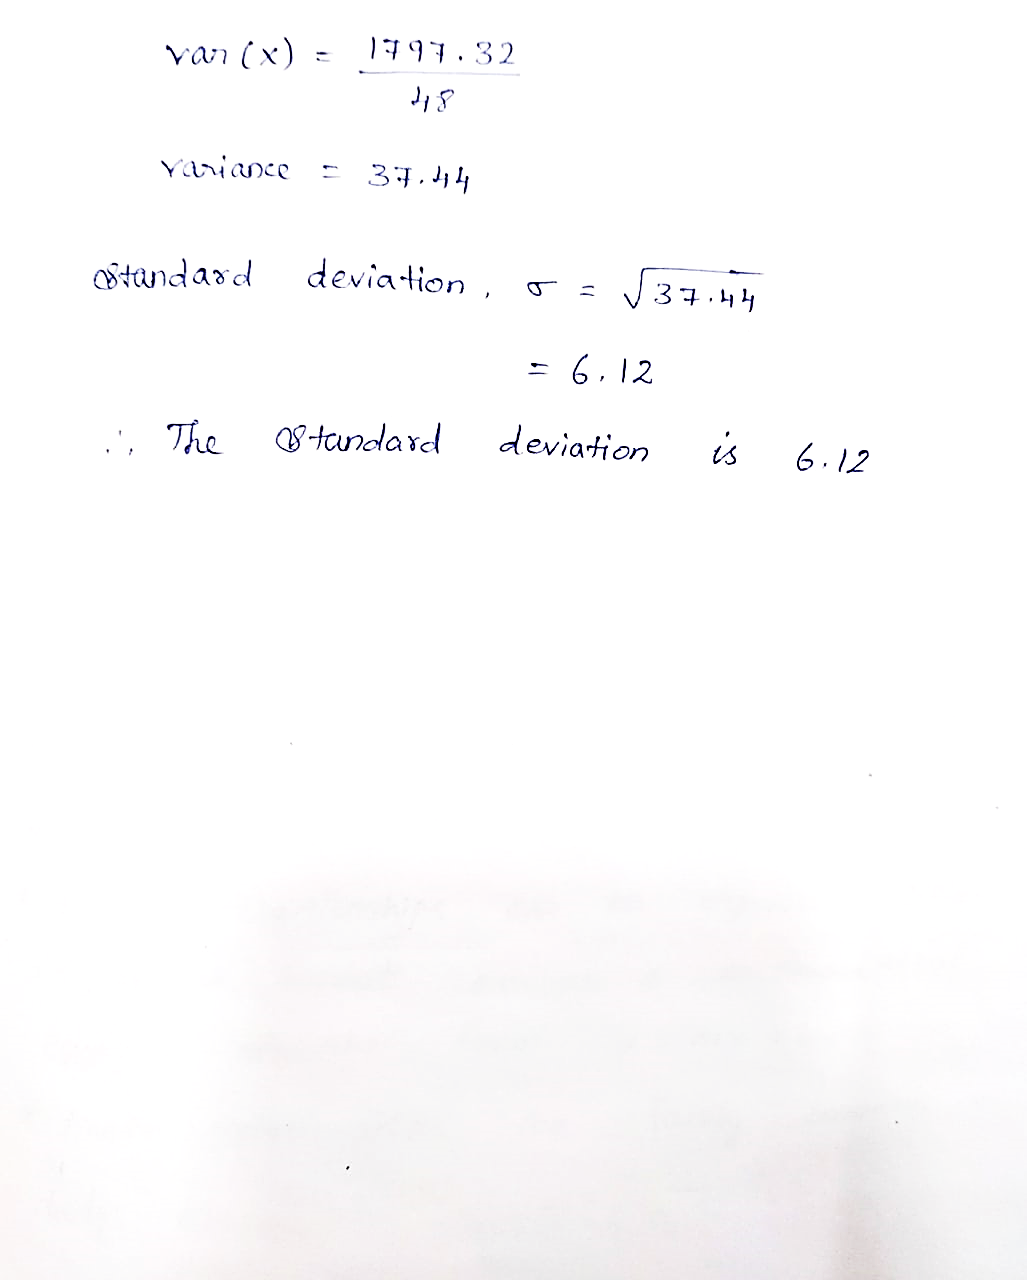 var (x) = 1797.32
48
variance = 37.44
Standard deviation, σ = √37.44
= 6.12
∴ The Standard deviation is 6.12